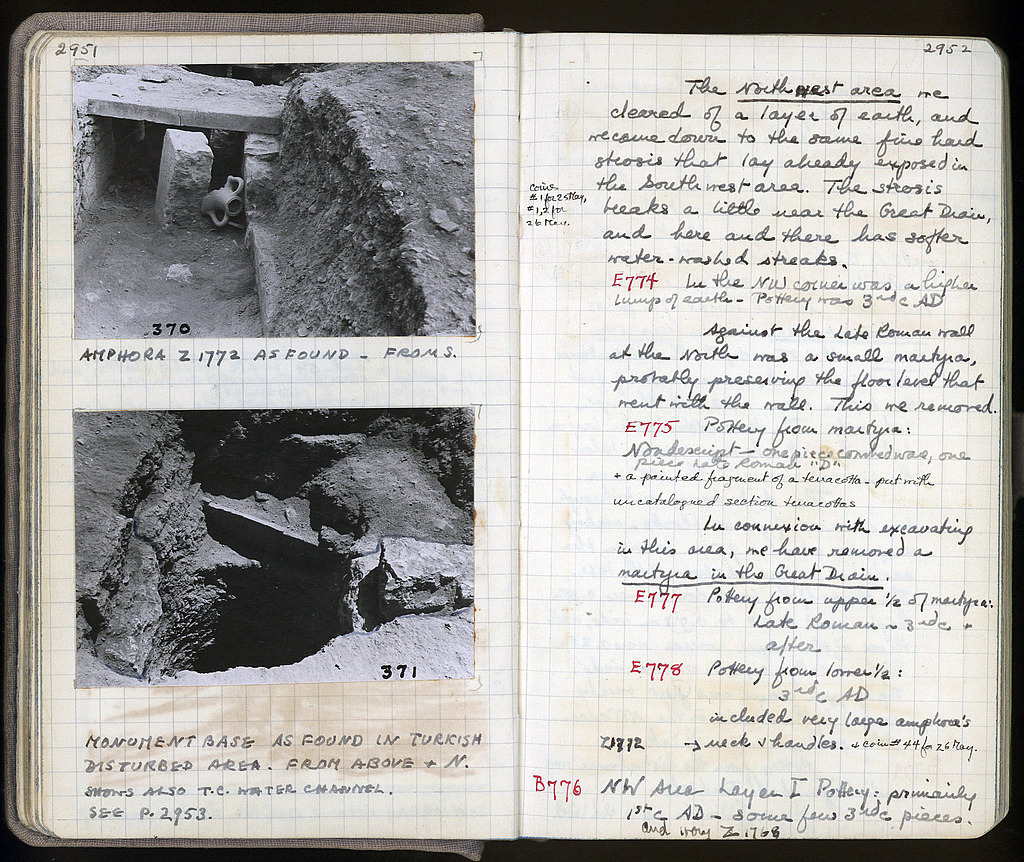 2951
370
AMPHORA Z 1772 AS FOUND – FROM S.
371
MONUMENT BASE AS FOUND IN TURKISH
DISTURBED AREA. FROM ABOVE + N.
SHOWS ALSO T.C. WATER CHANNEL.
SEE P. 2953.
2952
The North west area we
cleared of a layer of earth, and
we come down to the same fine hard
strosis that lay already exposed in
the Southwest area. The strosis
breaks a little near the Great Drain,
and here and there has softer
water-washed streaks.
coins
#1 for 25 May,
#1,2 for
26 May.
E774 In the NW corner was a higher
lump of earth – Pottery was 3rd c AD
Against the Late Roman wall
at the North was a small martyra,
probably preserving the floor level that
went with the wall. This we removed.
E775 Pottery from martyra:
Nondescript – one piece combed ware, one
piece Late Roman "D"
+ a painted fragment of a terracotta – put with
uncatalogued section terracottas
In connexion with excavating
in this area, we have removed a
martyra in the Great Drain.
E777 Pottery from upper 1/2 of martyra:
Late Roman ~ 3rd c +
after
E778 Pottery from lower 1/2:
3rd c AD
included very large amphora's
Z1772 → neck + handles. + coin #44 for 26 May.
B776 NW Area Layer I Pottery: primarily
1st c AD – some few 3rd c pieces.
and ivory Z 1768